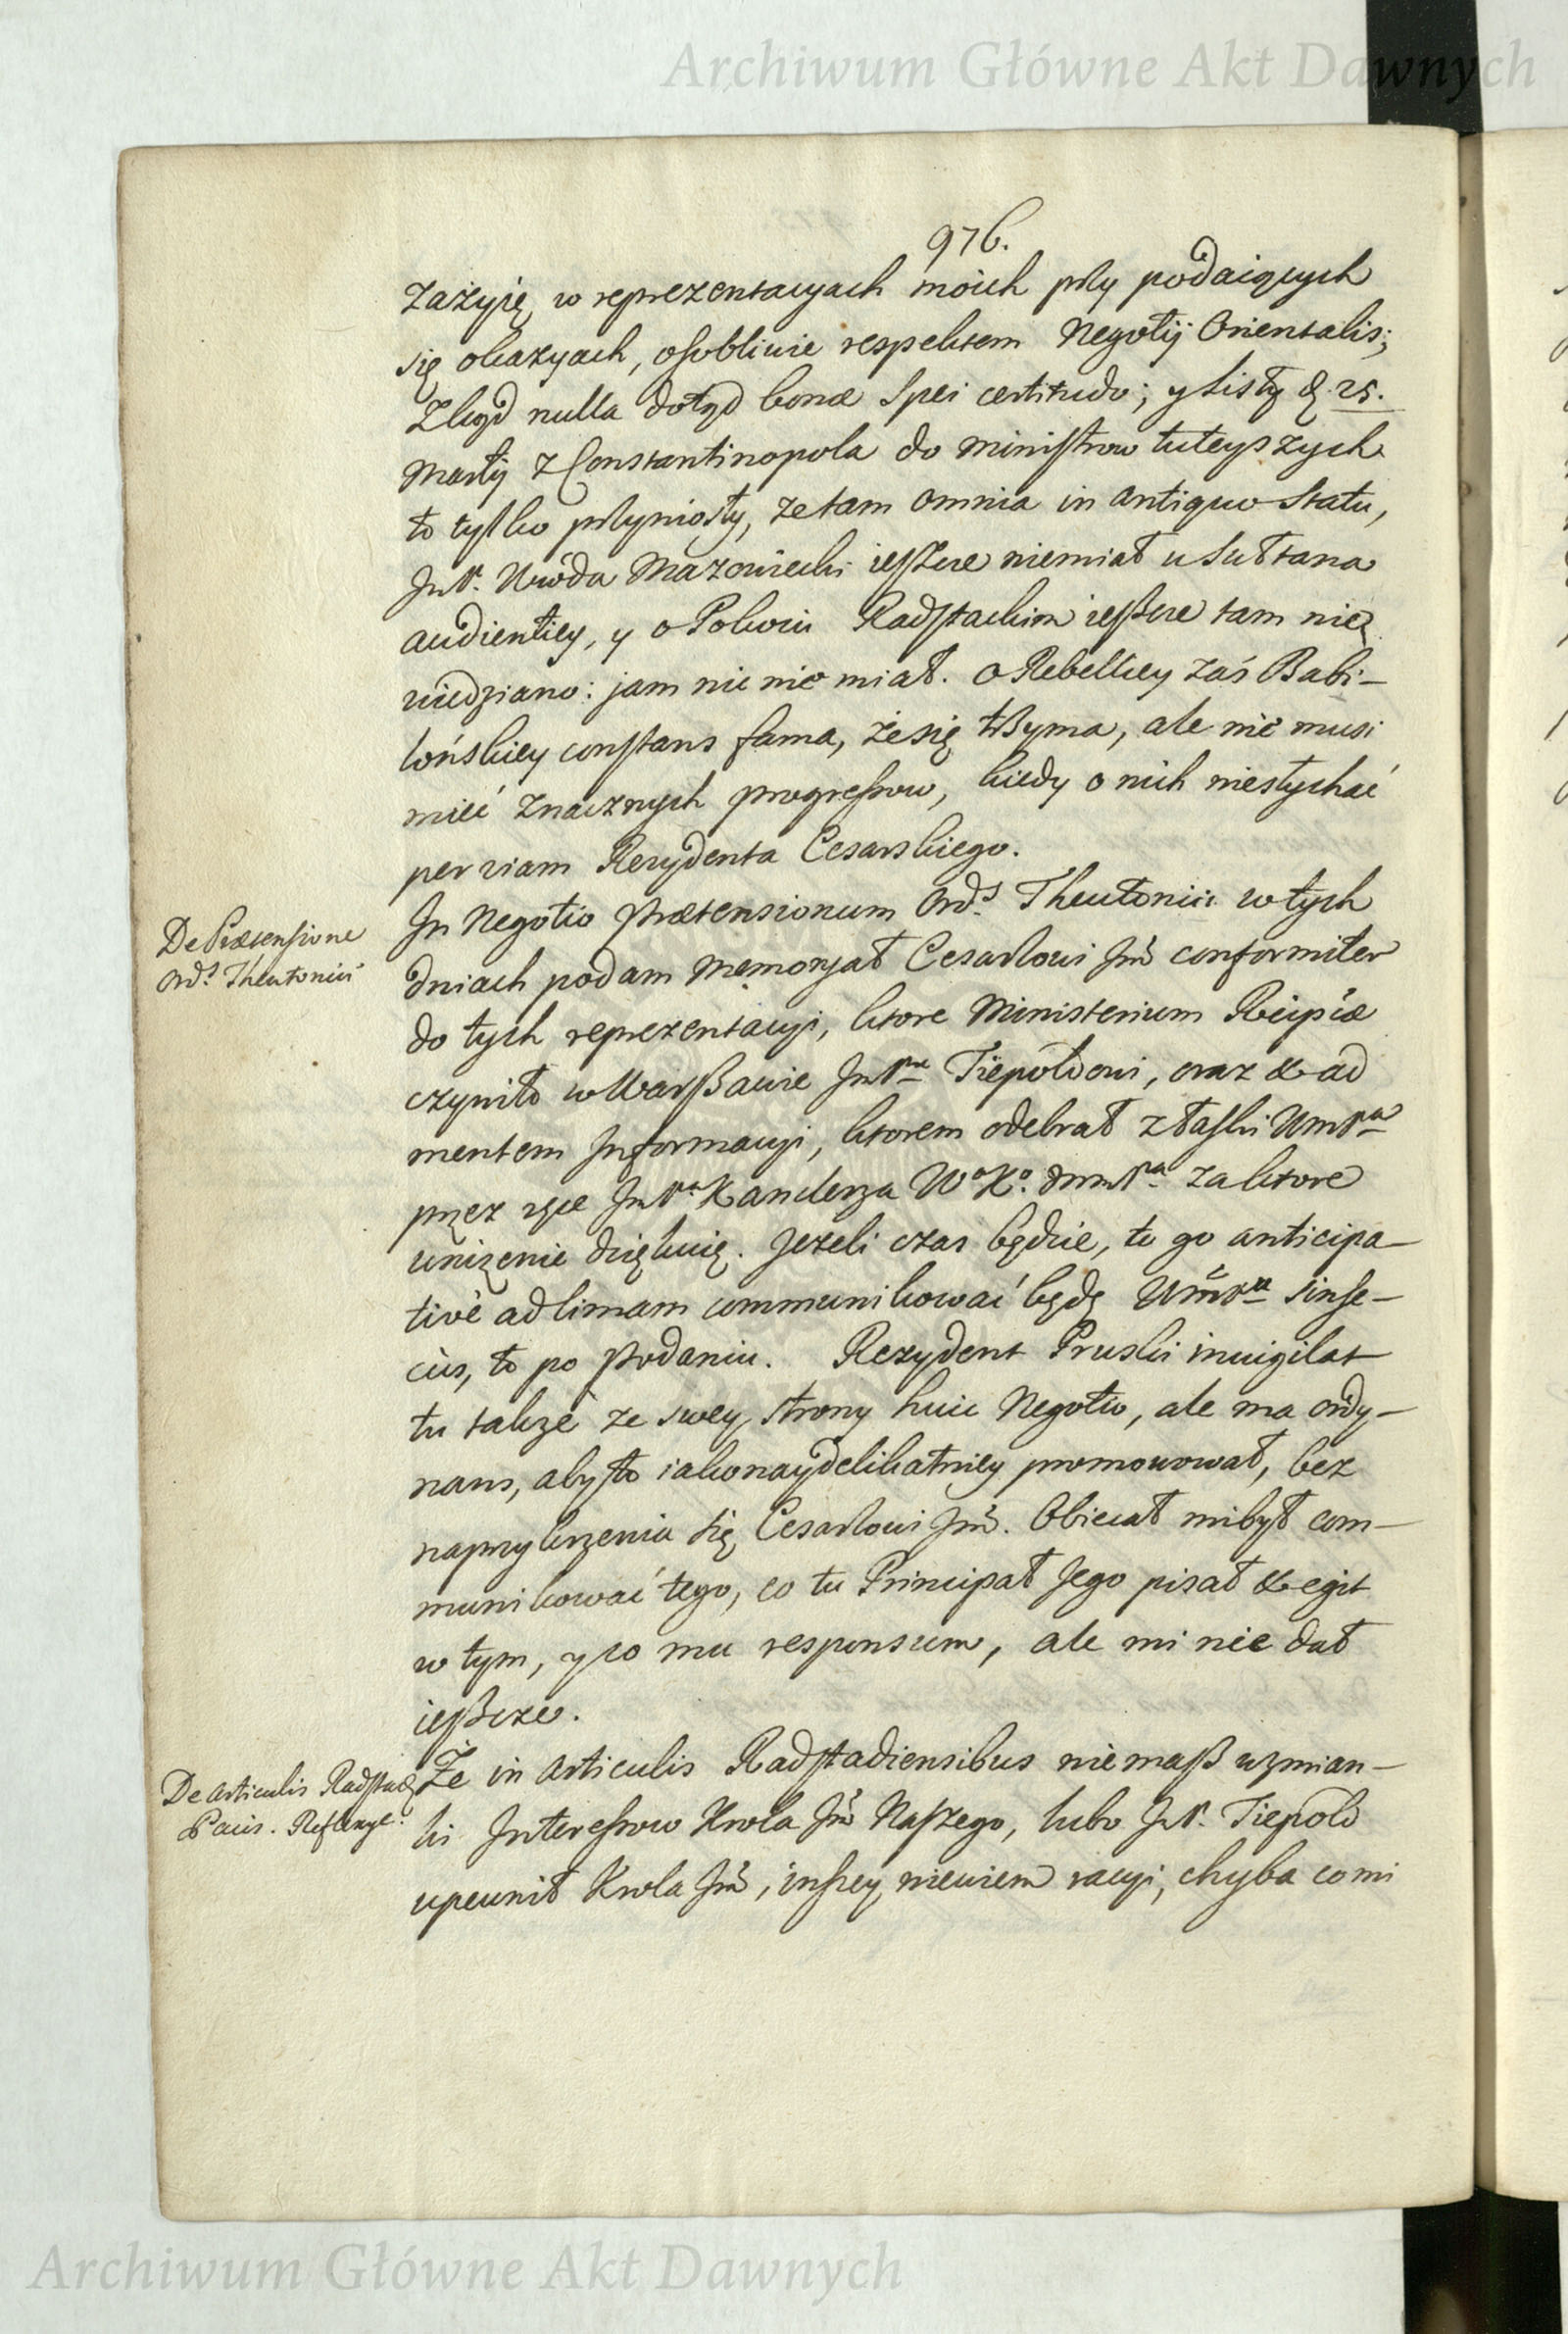 Archiwum Główne Akt Dawnych
976.
zażyię w reprezentacyach moich przy podaiących
się okazyach, osobliwie respektem Negotij Orientalis;
zkąd nulla dotąd bonæ spei certitudo; y Listy d. 25.
Martij z Constantinopola do Ministrow tuteyszych
to tylko przyniosły, że tam omnia in antiquo Statu,
JmP. Wwda Mazowiecki ieszcze niemiał u Sułtana
audientiey, y o Pokoiu Radstackim ieszcze tam nie
wiedziano: jam nic nie miał. o Rebelliey zaś Babi-
lońskiey constans fama, że się trzyma, ale nie musi
mieć znacznych progressow, kiedy o nich niesłychać
per viam Rezydenta Cesarskiego.
De Prætensione
Ords Theutonici
In Negotio Prætensionum Ords Theutonici w tych
dniach podam memoryał Cesarzowi Jmć conformiter
do tych reprezentacyi, ktore Ministerium Reipcæ
czyniło w Warszawie JmPnu Tiepoldowi, oraz & ad
mentem Informacyi, ktorem odebrał z łaski WmPna
przez ręce JmPa Kanclerza Wo Ko. DnmPa za ktore
uniżenie dziękuię. Jeżeli czas będzie, to go anticipa-
tivè ad limam communikować będę WmPnu sinse-
cùs, to po podaniu. Rezydent Pruski invigilat
tu także ze swey strony huic Negotio, ale ma ordy-
nans, aby to iako naydelikatniey promowował, bez
naprzykrzenia się Cesarzowi Jmć. Obiecał mi był com-
munikować tego, co tu Principał Jego pisał & egit
w tym, y co mu responsum, ale mi nie dał
ieszcze.
De Articulis Radstad.
Pacis. Reflexye.
Że in Articulis Radstadiensibus niemasz wzmian-
ki Interessow Krola Jmć Naszego, lubo JmP. Tiepold
upewnił Krola Jmć, inszey niewiem racyi, chyba co mi
Archiwum Główne Akt Dawnych